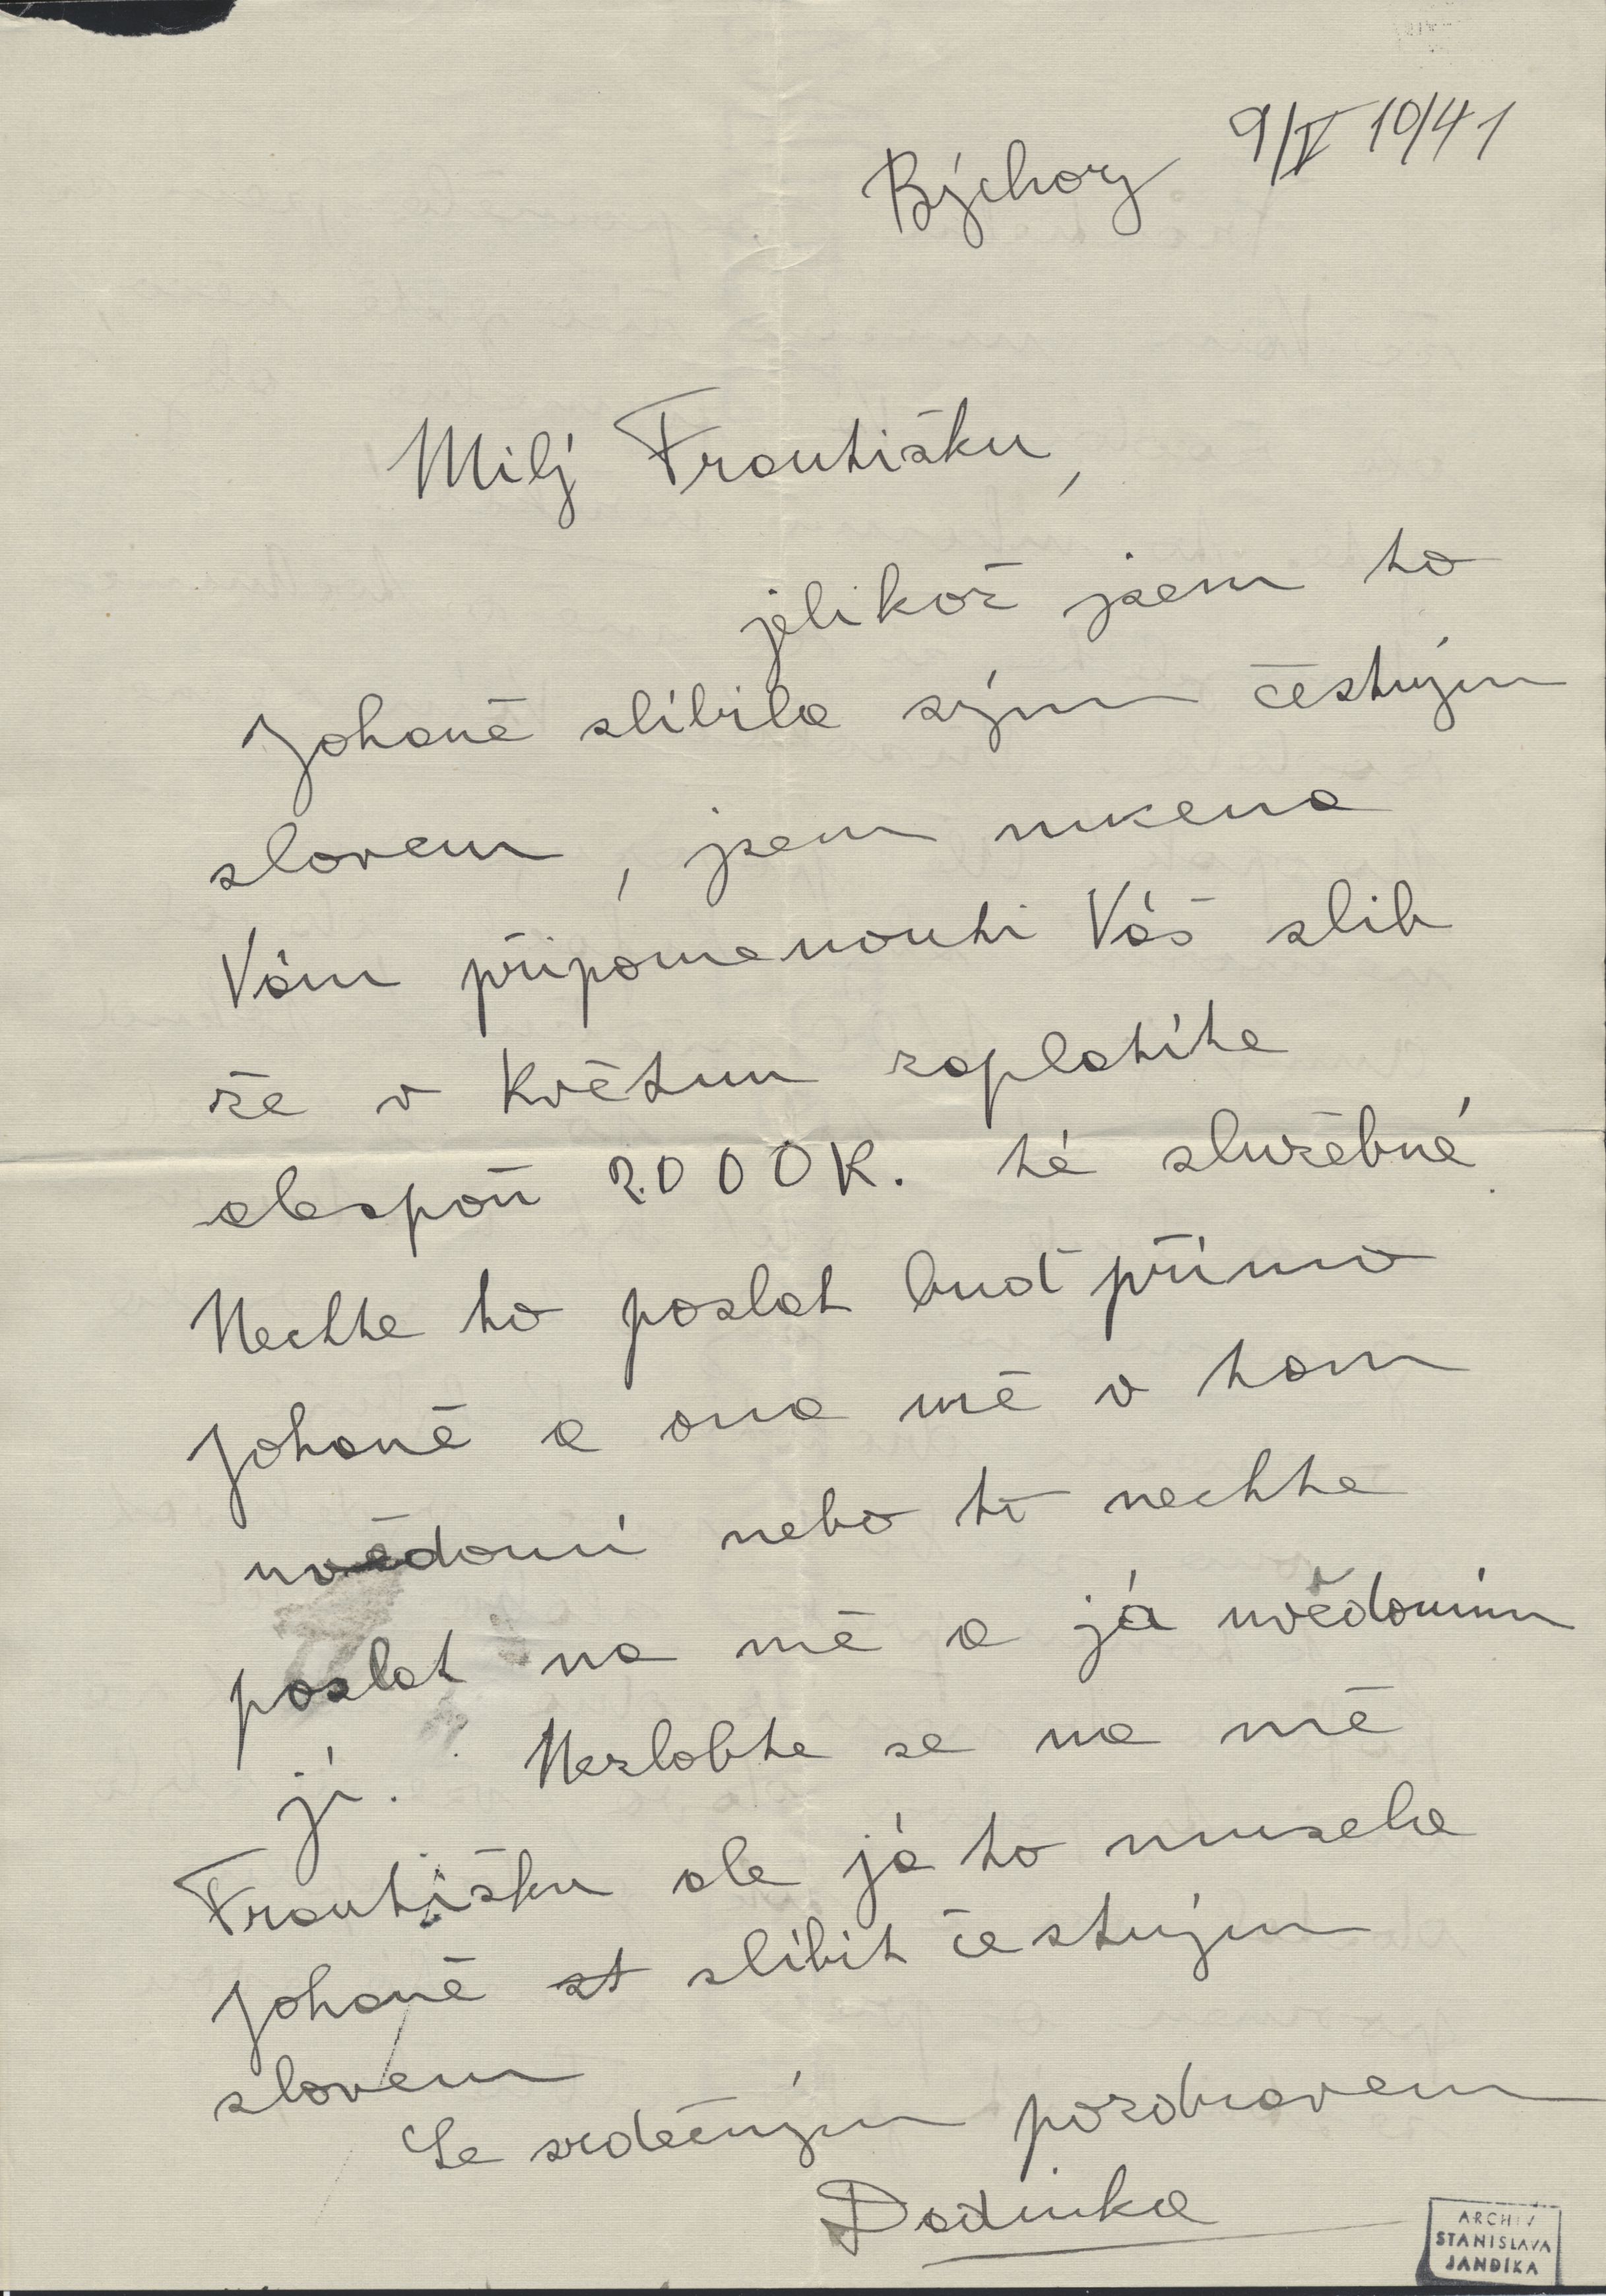 Býchory 9/V 19/41
Milý Františku,
jelikož jsem to
Johaně slíbila svým čestným
slovem, jsem nucena
Vám připomenouti Váš slib
že v Květnu zaplatíte
alespoň 2000K. té služebné.
Nechte to poslat buď přímo
Johaně a ona mě o tom
uvědomí nebo to nechte
poslat na mě a já uvědomím
jí. Nezlobte se na mě
Františku ale já to musela
Johaně st slíbit čestným
slovem
Se srdečným pozdravem
ARCHIV
STANISLAVA
JANDÍKA